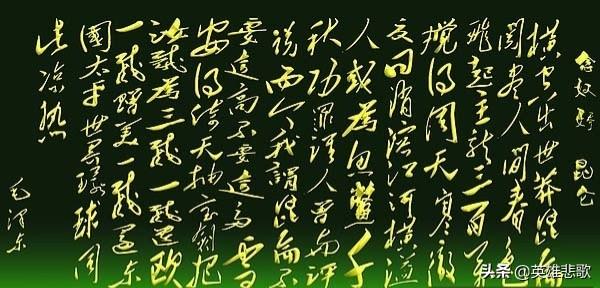 念奴娇 昆仑
横空出世莽崑崙
阅尽人间春色
飛起玉龍三百萬
搅得周天寒徹
夏日消溶江河横溢
人或為魚鳖千
秋功罪谁人曾与評
说而今我謂崑崙不
要這高不要這多雪
安得倚天抽宝剑把
汝截為三截一截遗欧
一截赠美一截還东
國太平世界環球同
此凉热
毛泽东
头条 @英雄悲歌